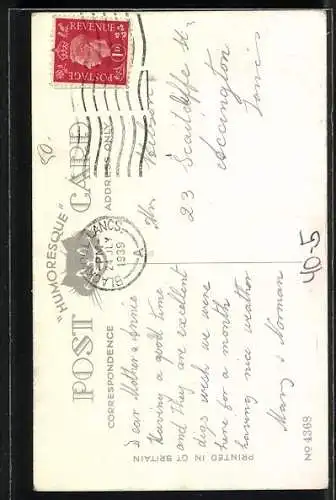 "HUMORESQUE"
POST CARD
CORRESPONDENCE
ADDRESS ONLY
POSTAGE
REVENUE
1D
LANCS.
JLY
1939
Dear Mother & Annie
Having a good time
and they are excellent
digs wish we were
here for a month
having nice weather
Mary & Norman
23 Scaitcliffe St
Accington
Lancs
40-5
PRINTED IN GT BRITAIN
No 4368